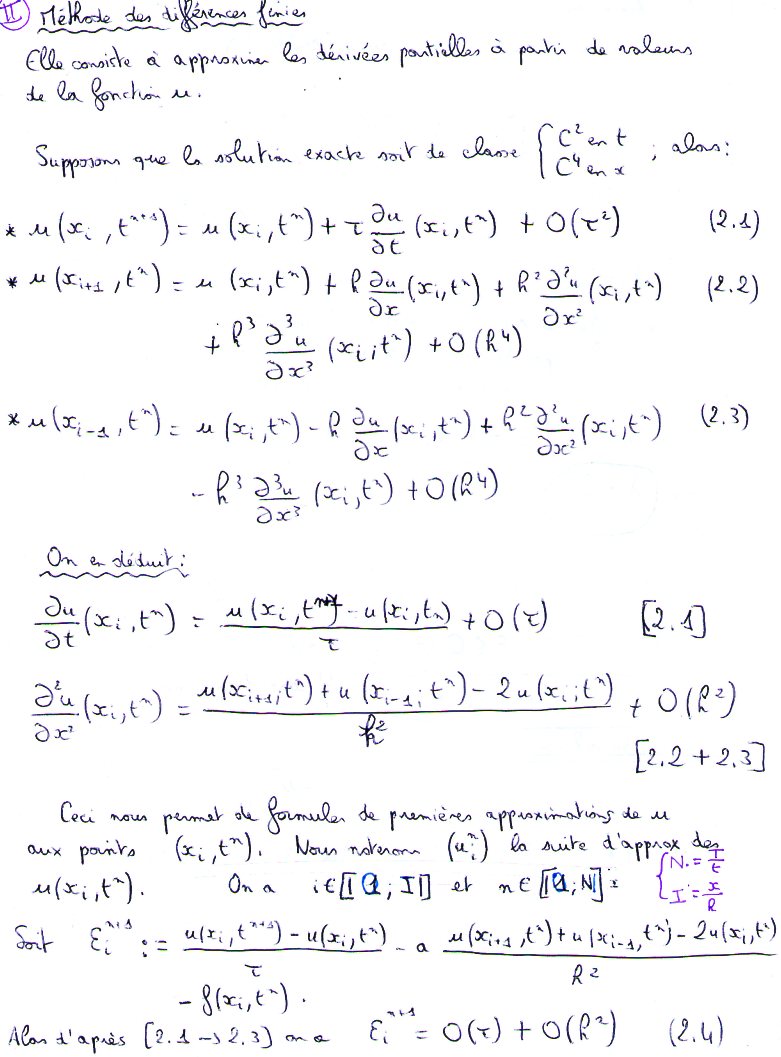 II Méthode des différences finies
Elle consiste à approximer les dérivées partielles à partir de valeurs
de la fonction u.
Supposons que la solution exacte soit de classe { C² en t ; C⁴ en x ; alors :
* u(xᵢ, tⁿ⁺¹) = u(xᵢ, tⁿ) + τ ∂u/∂t (xᵢ, tⁿ) + O(τ²) (2.1)
* u(xᵢ₊₁, tⁿ) = u(xᵢ, tⁿ) + h ∂u/∂x (xᵢ, tⁿ) + h² ∂²u/∂x² (xᵢ, tⁿ) (2.2)
+ h³ ∂³u/∂x³ (xᵢ, tⁿ) + O(h⁴)
* u(xᵢ₋₁, tⁿ) = u(xᵢ, tⁿ) - h ∂u/∂x (xᵢ, tⁿ) + h² ∂²u/∂x² (xᵢ, tⁿ) (2.3)
- h³ ∂³u/∂x³ (xᵢ, tⁿ) + O(h⁴)
On en déduit :
∂u/∂t (xᵢ, tⁿ) = (u(xᵢ, tⁿ⁺¹) - u(xᵢ, tₙ))/τ + O(τ) [2.1]
∂²u/∂x² (xᵢ, tⁿ) = (u(xᵢ₊₁, tⁿ) + u(xᵢ₋₁, tⁿ) - 2u(xᵢ, tⁿ))/h² + O(h²)
[2.2 + 2.3]
Ceci nous permet de formuler de premières approximations de u
aux points (xᵢ, tⁿ). Nous noterons (uᵢⁿ) la suite d'approx des
u(xᵢ, tⁿ). On a i ∈ [|0 ; I|] et n ∈ [|0 ; N|] : { N = T/t ; I = x/h
Soit εᵢⁿ⁺¹ := (u(xᵢ, tⁿ⁺¹) - u(xᵢ, tⁿ))/τ - a (u(xᵢ₊₁, tⁿ) + u(xᵢ₋₁, tⁿ) - 2u(xᵢ, tⁿ))/h²
- f(xᵢ, tⁿ).
Alors d'après [2.1 → 2.3] on a εᵢⁿ⁺¹ = O(τ) + O(h²) (2.4)